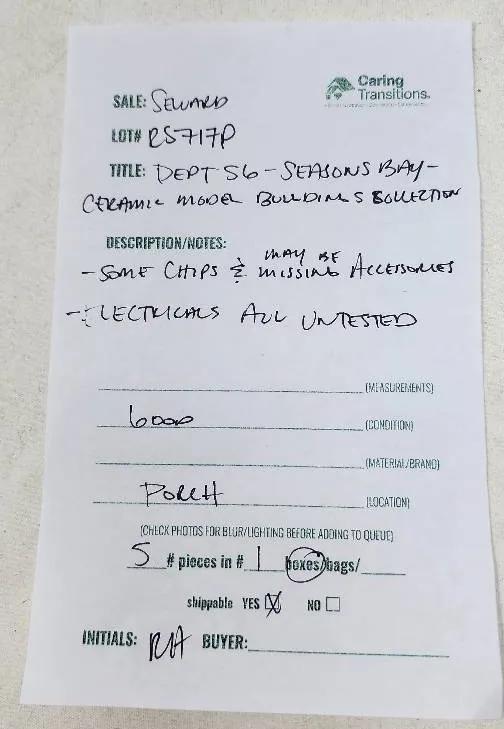 Caring
Transitions
SALE: SEWARD
LOT# RS717P
TITLE: DEPT 56 - SEASONS BAY -
CERAMIC MODEL BUILDINGS COLLECTION
DESCRIPTION/NOTES:
- SOME CHIPS & MAY BE MISSING ACCESSORIES
- ELECTRICALS ALL UNTESTED
(MEASUREMENTS)
GOOD (CONDITION)
(MATERIAL/BRAND)
PORCH (LOCATION)
(CHECK PHOTOS FOR BLUR/LIGHTING BEFORE ADDING TO QUEUE)
5 # pieces in # 1 boxes/bags/
shippable YES ☒ NO ☐
INITIALS: BUYER: